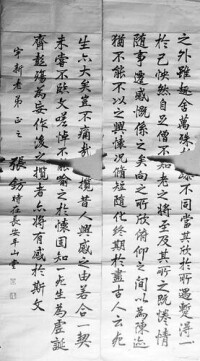 之外雖趣舍萬殊不同當其欣於所遇暫得
於己快然自足曾不知老之將至及其所之既惓情
隨事遷感慨係之矣向之所欣俯仰之間以為陳迹
猶不能不以之興懷況脩短隨化終期於盡古人云死
生亦大矣豈不痛哉攬昔人興感之由若合一契
未嘗不臨文嗟悼不能喻之於懷固知一死生為虛誕
齊彭殤為妄作後之攬者亦將有感於斯文
宇新老弟正之
張鈁時在長安年